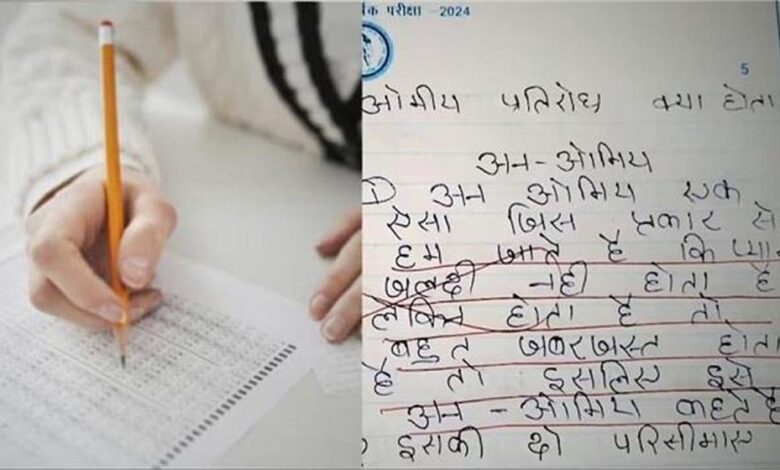 र्क परीक्षा -2024
5
ओमीय प्रतिरोध क्या होता
अन-ओमिय
① अन ओमिय एक
ऐसा जिस प्रकार से
हम जाते है कि प्या
जलदी नही होता है
लेकिन होता है तो
बहुत जबरजस्त होता
है तो इसलिए इसे
अन - ओमिय कहते है
इसकी दो परिसीमाए